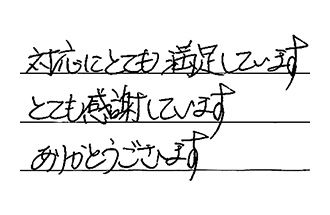 対応にとても満足しています
とても感謝しています
ありがとうございます